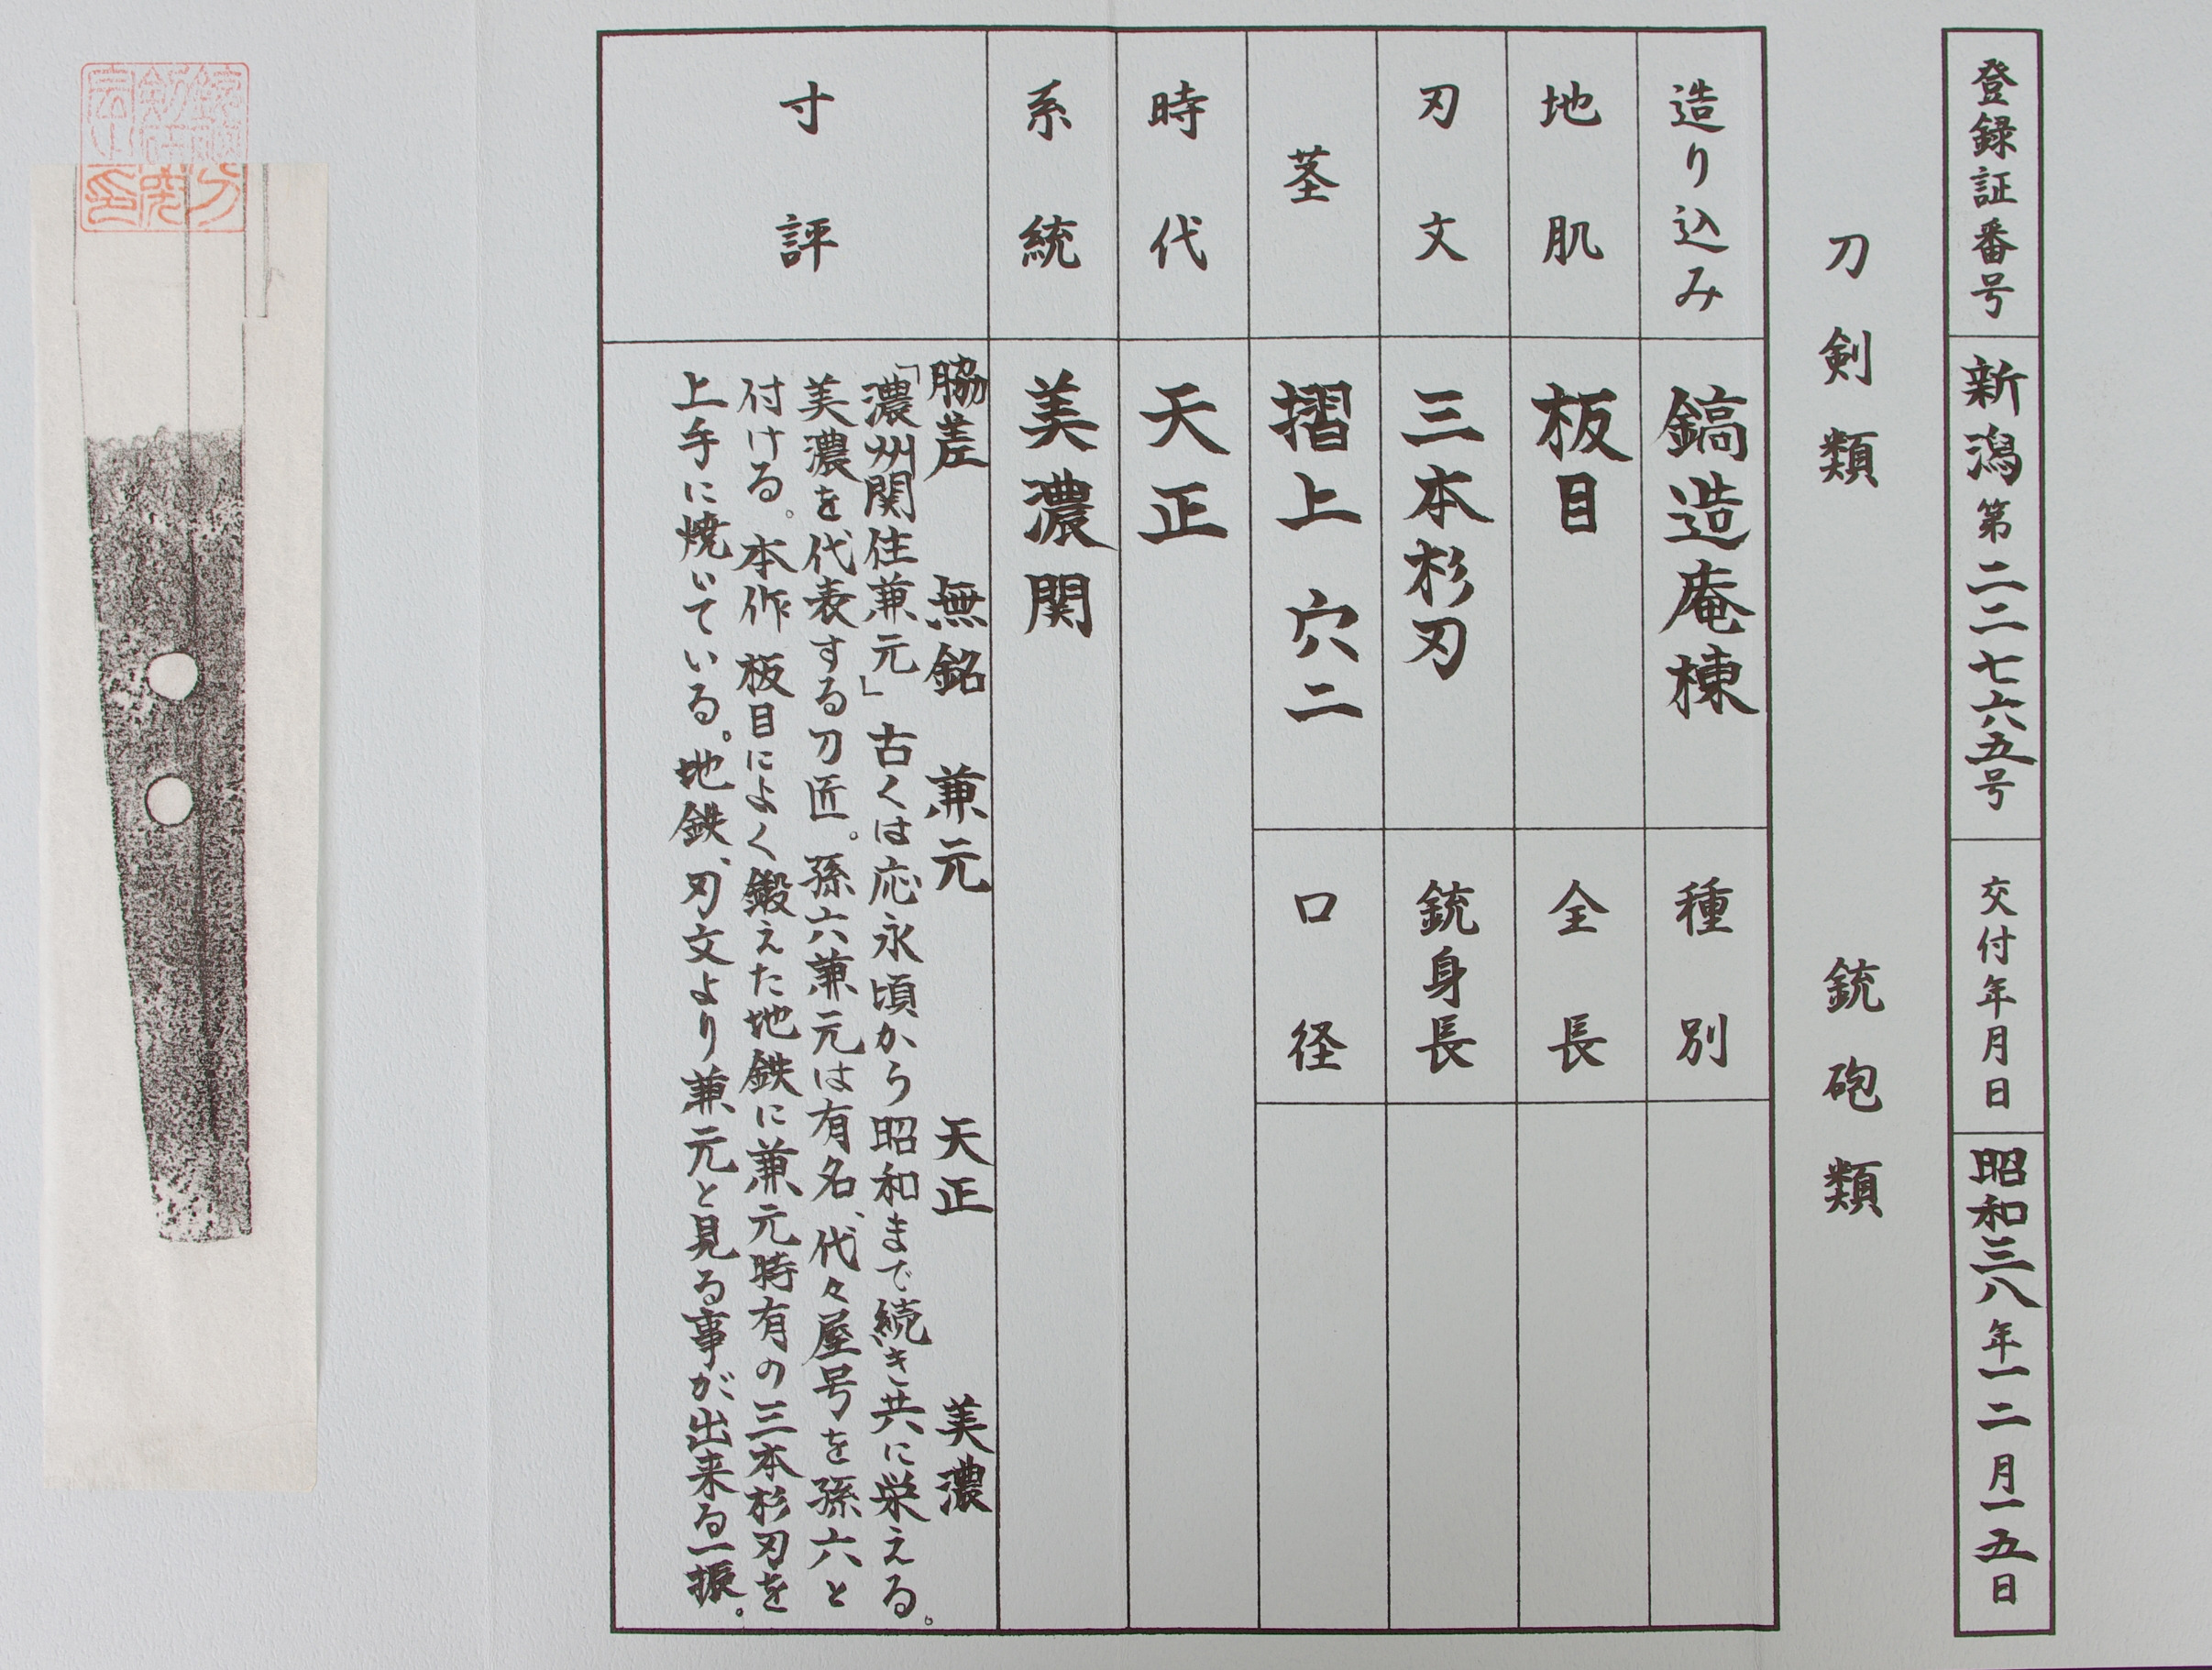 登録証番号 新潟第二二七六五号 交付年月日 昭和三八年一二月一五日
刀剣類 銃砲類
造り込み 鎬造庵棟 種別
地肌 板目 全長
刃文 三本杉刃 銃身長
茎 摺上 穴二 口径
時代 天正
系統 美濃関
寸評 脇差 無銘 兼元 天正 美濃
「濃州関住兼元」古くは応永頃から昭和まで続き共に栄える。
美濃を代表する刀匠。孫六兼元は有名、代々屋号を孫六と
付ける。本作 板目によく鍛えた地鉄に兼元特有の三本杉刃を
上手に焼いている。地鉄、刃文より兼元と見る事が出来る一振。